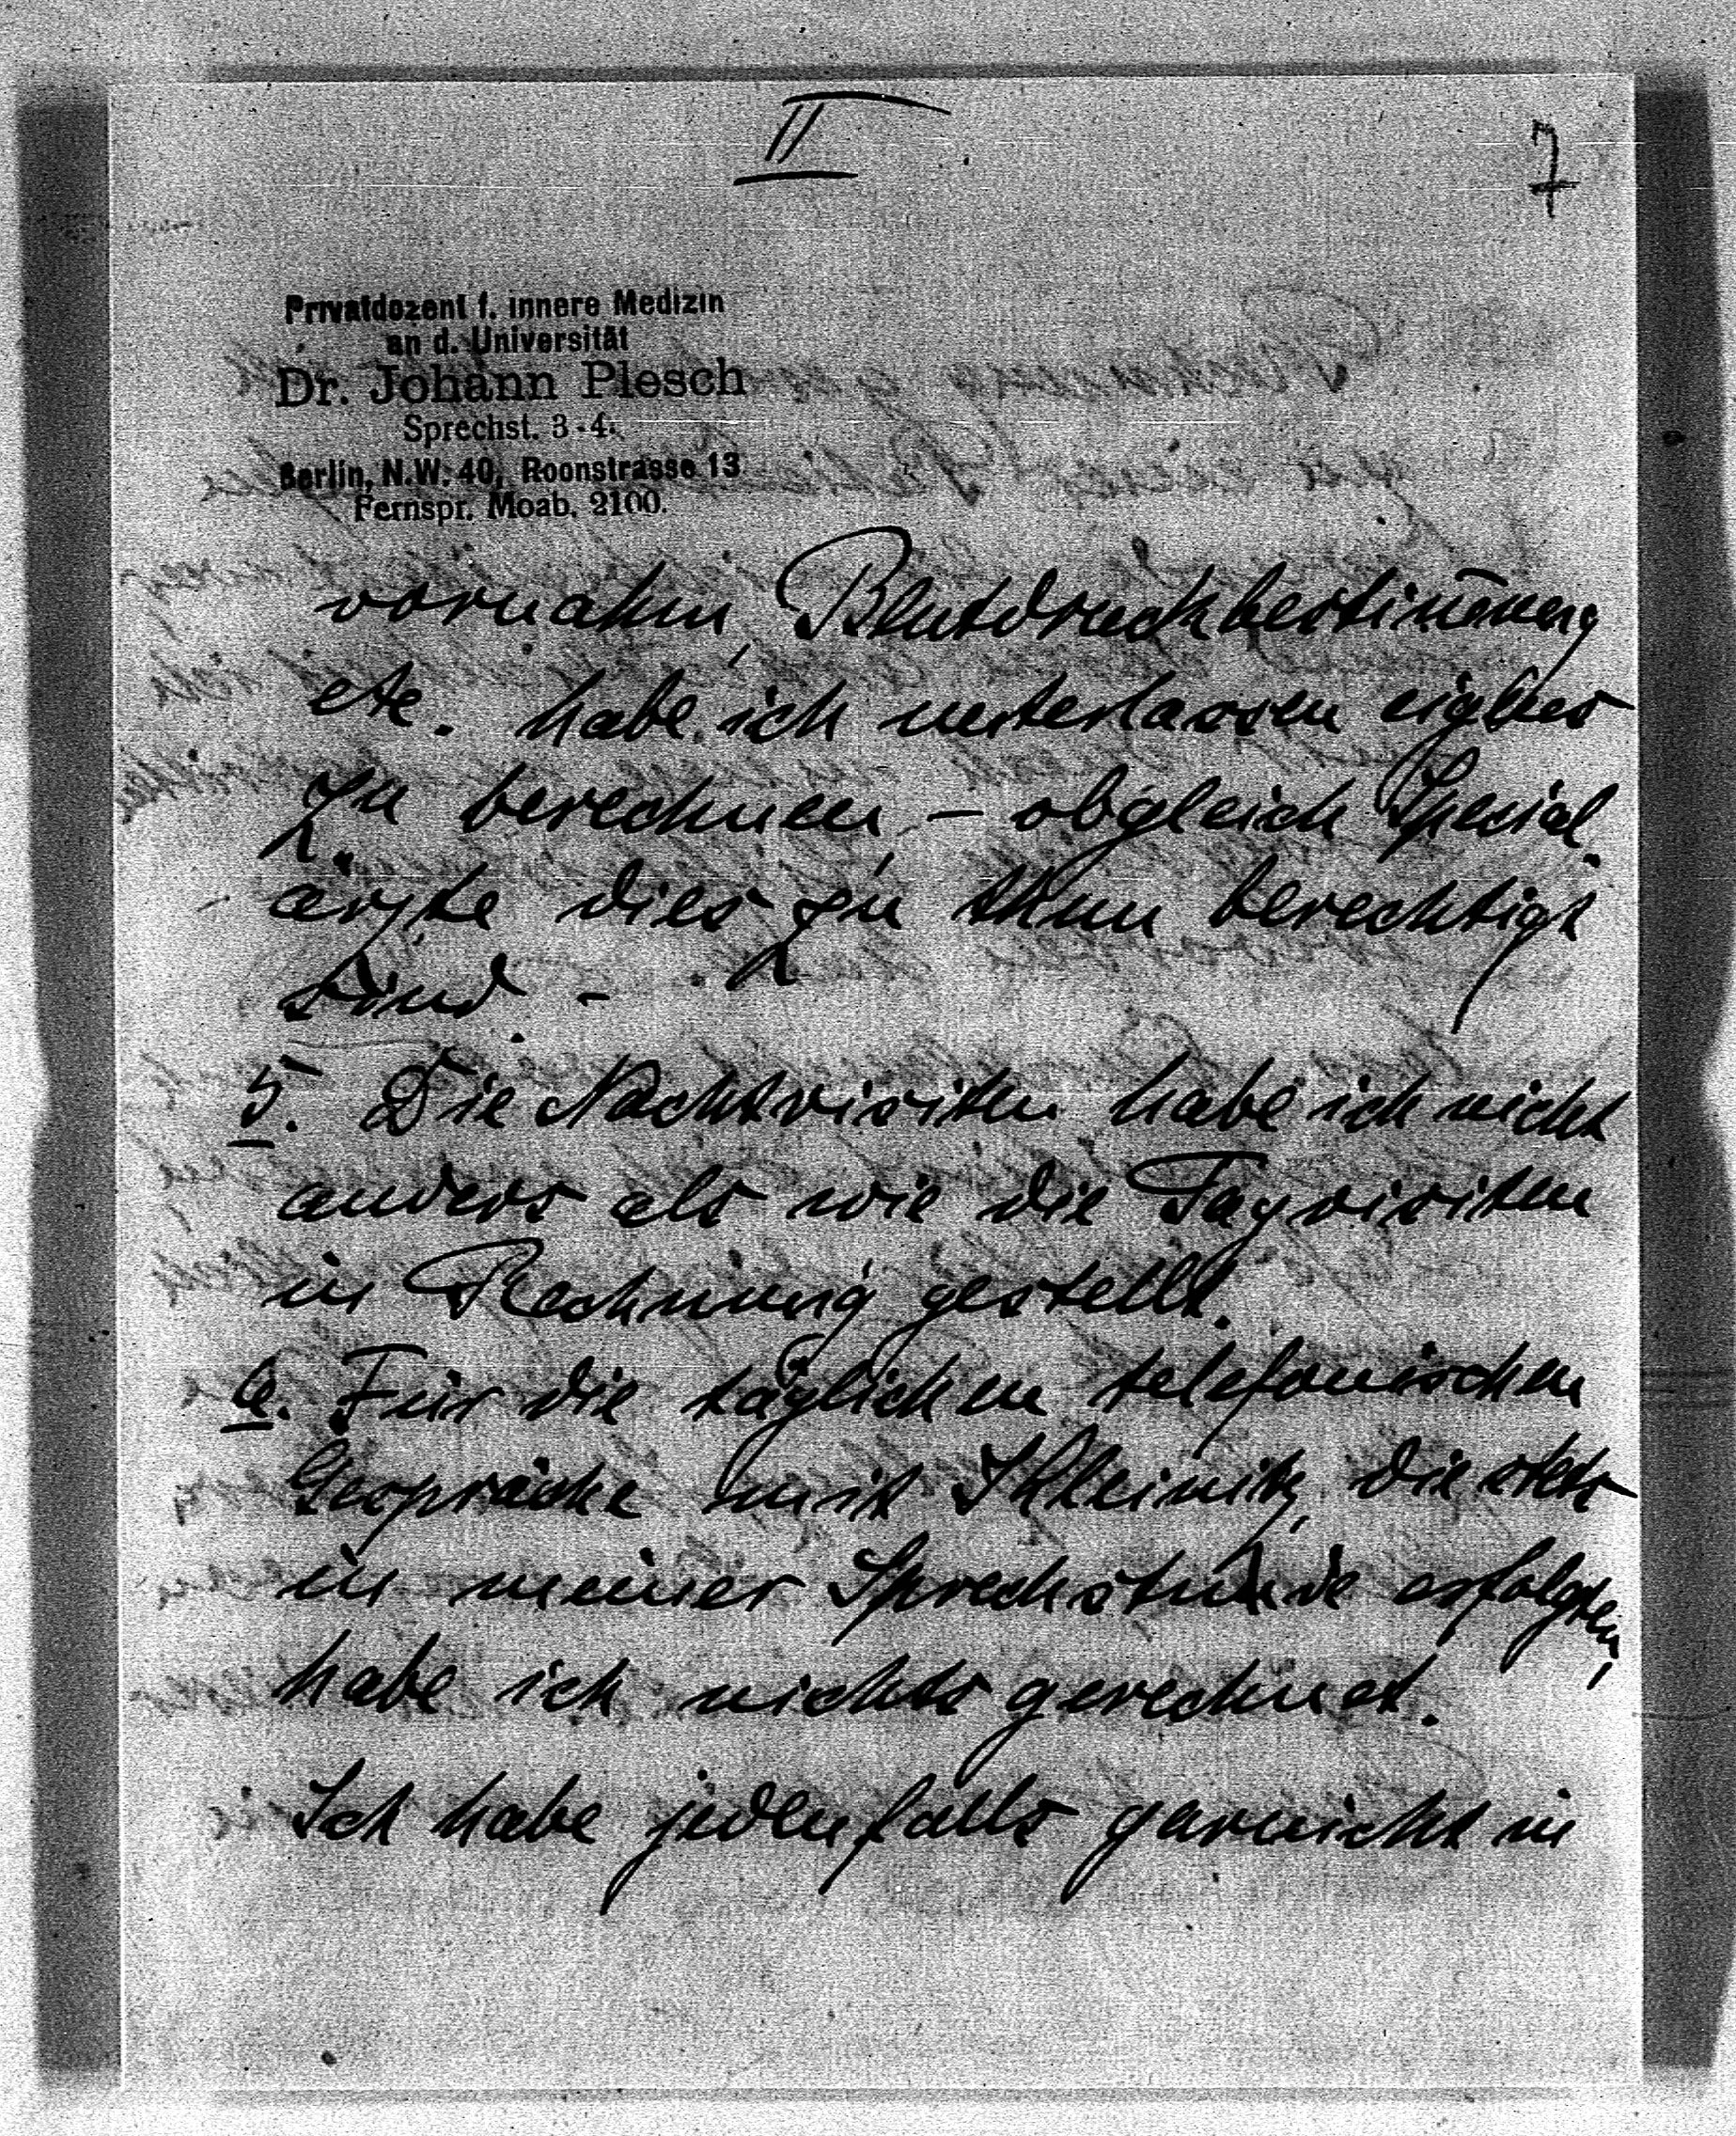 II
7
Privatdozent f. innere Medizin
an d. Universität
Dr. Johann Plesch
Sprechst. 3-4.
Berlin, N.W. 40, Roonstrasse 13
Fernspr. Moab. 2100.
vornahm, Blutdruckbestim̅ung
etc. habe ich unterlassen
zu berechnen – obgleich Special
ärzte dies zu thun berechtigt
sind. –
5. Die Nachtvisiten habe ich nicht
anders als wie die Tagvisiten
in Rechnung gestellt.
6. Für die täglichen telefonischen
Gespräche mit die stets
in meiner Sprechstunde erfolgten,
habe ich nichts gerechnet.
Ich habe jedenfalls garnicht in